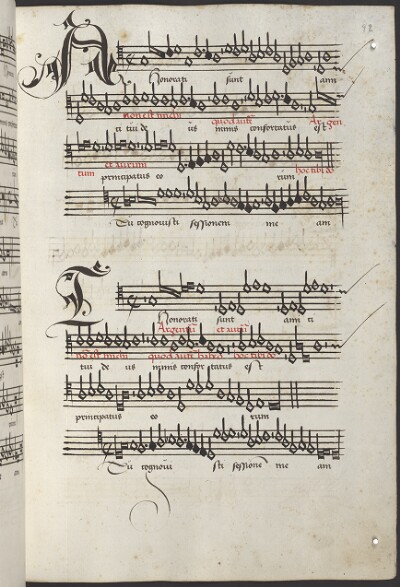 92
A
Honorati sunt ami
non est michi quod auti Argen
ci tui de us nimis confortatus est
tum et aurum hoc tibi do
principatus eo rum
Tu cognovisti sessionem me am
T
Honorati sunt ami ci
Argentum et aurum
non est michi quod autem habeo hoc tibi do
tui de us nimis confor tatus est
principatus eo rum
Tu cognovi sti sessionem me am